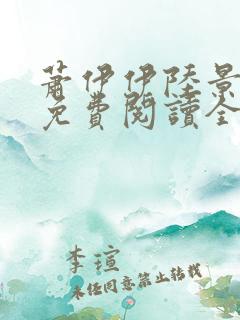 蕭伊伊陸景
免費閱讀全
李瑄
未经同意禁止转载